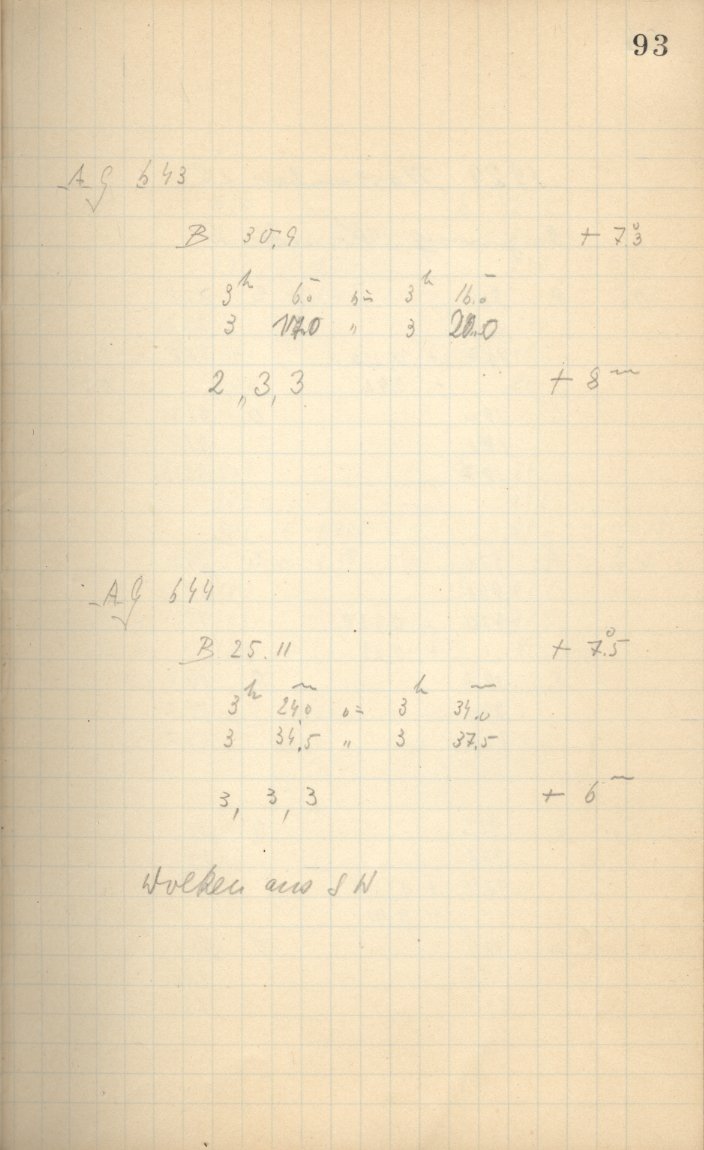 93
AG 643
B 30,9 + 7°.3
3h 6.0m bis 3h 16.0m
3 17.0 " 3 20.0
2,, 3, 3 + 8m
AG 644
B 25.11 + 7°.5
3h 24.0m bis 3h 34.0m
3 34.5 " 3 37.5
3, 3, 3 + 6m
Wolken aus SW